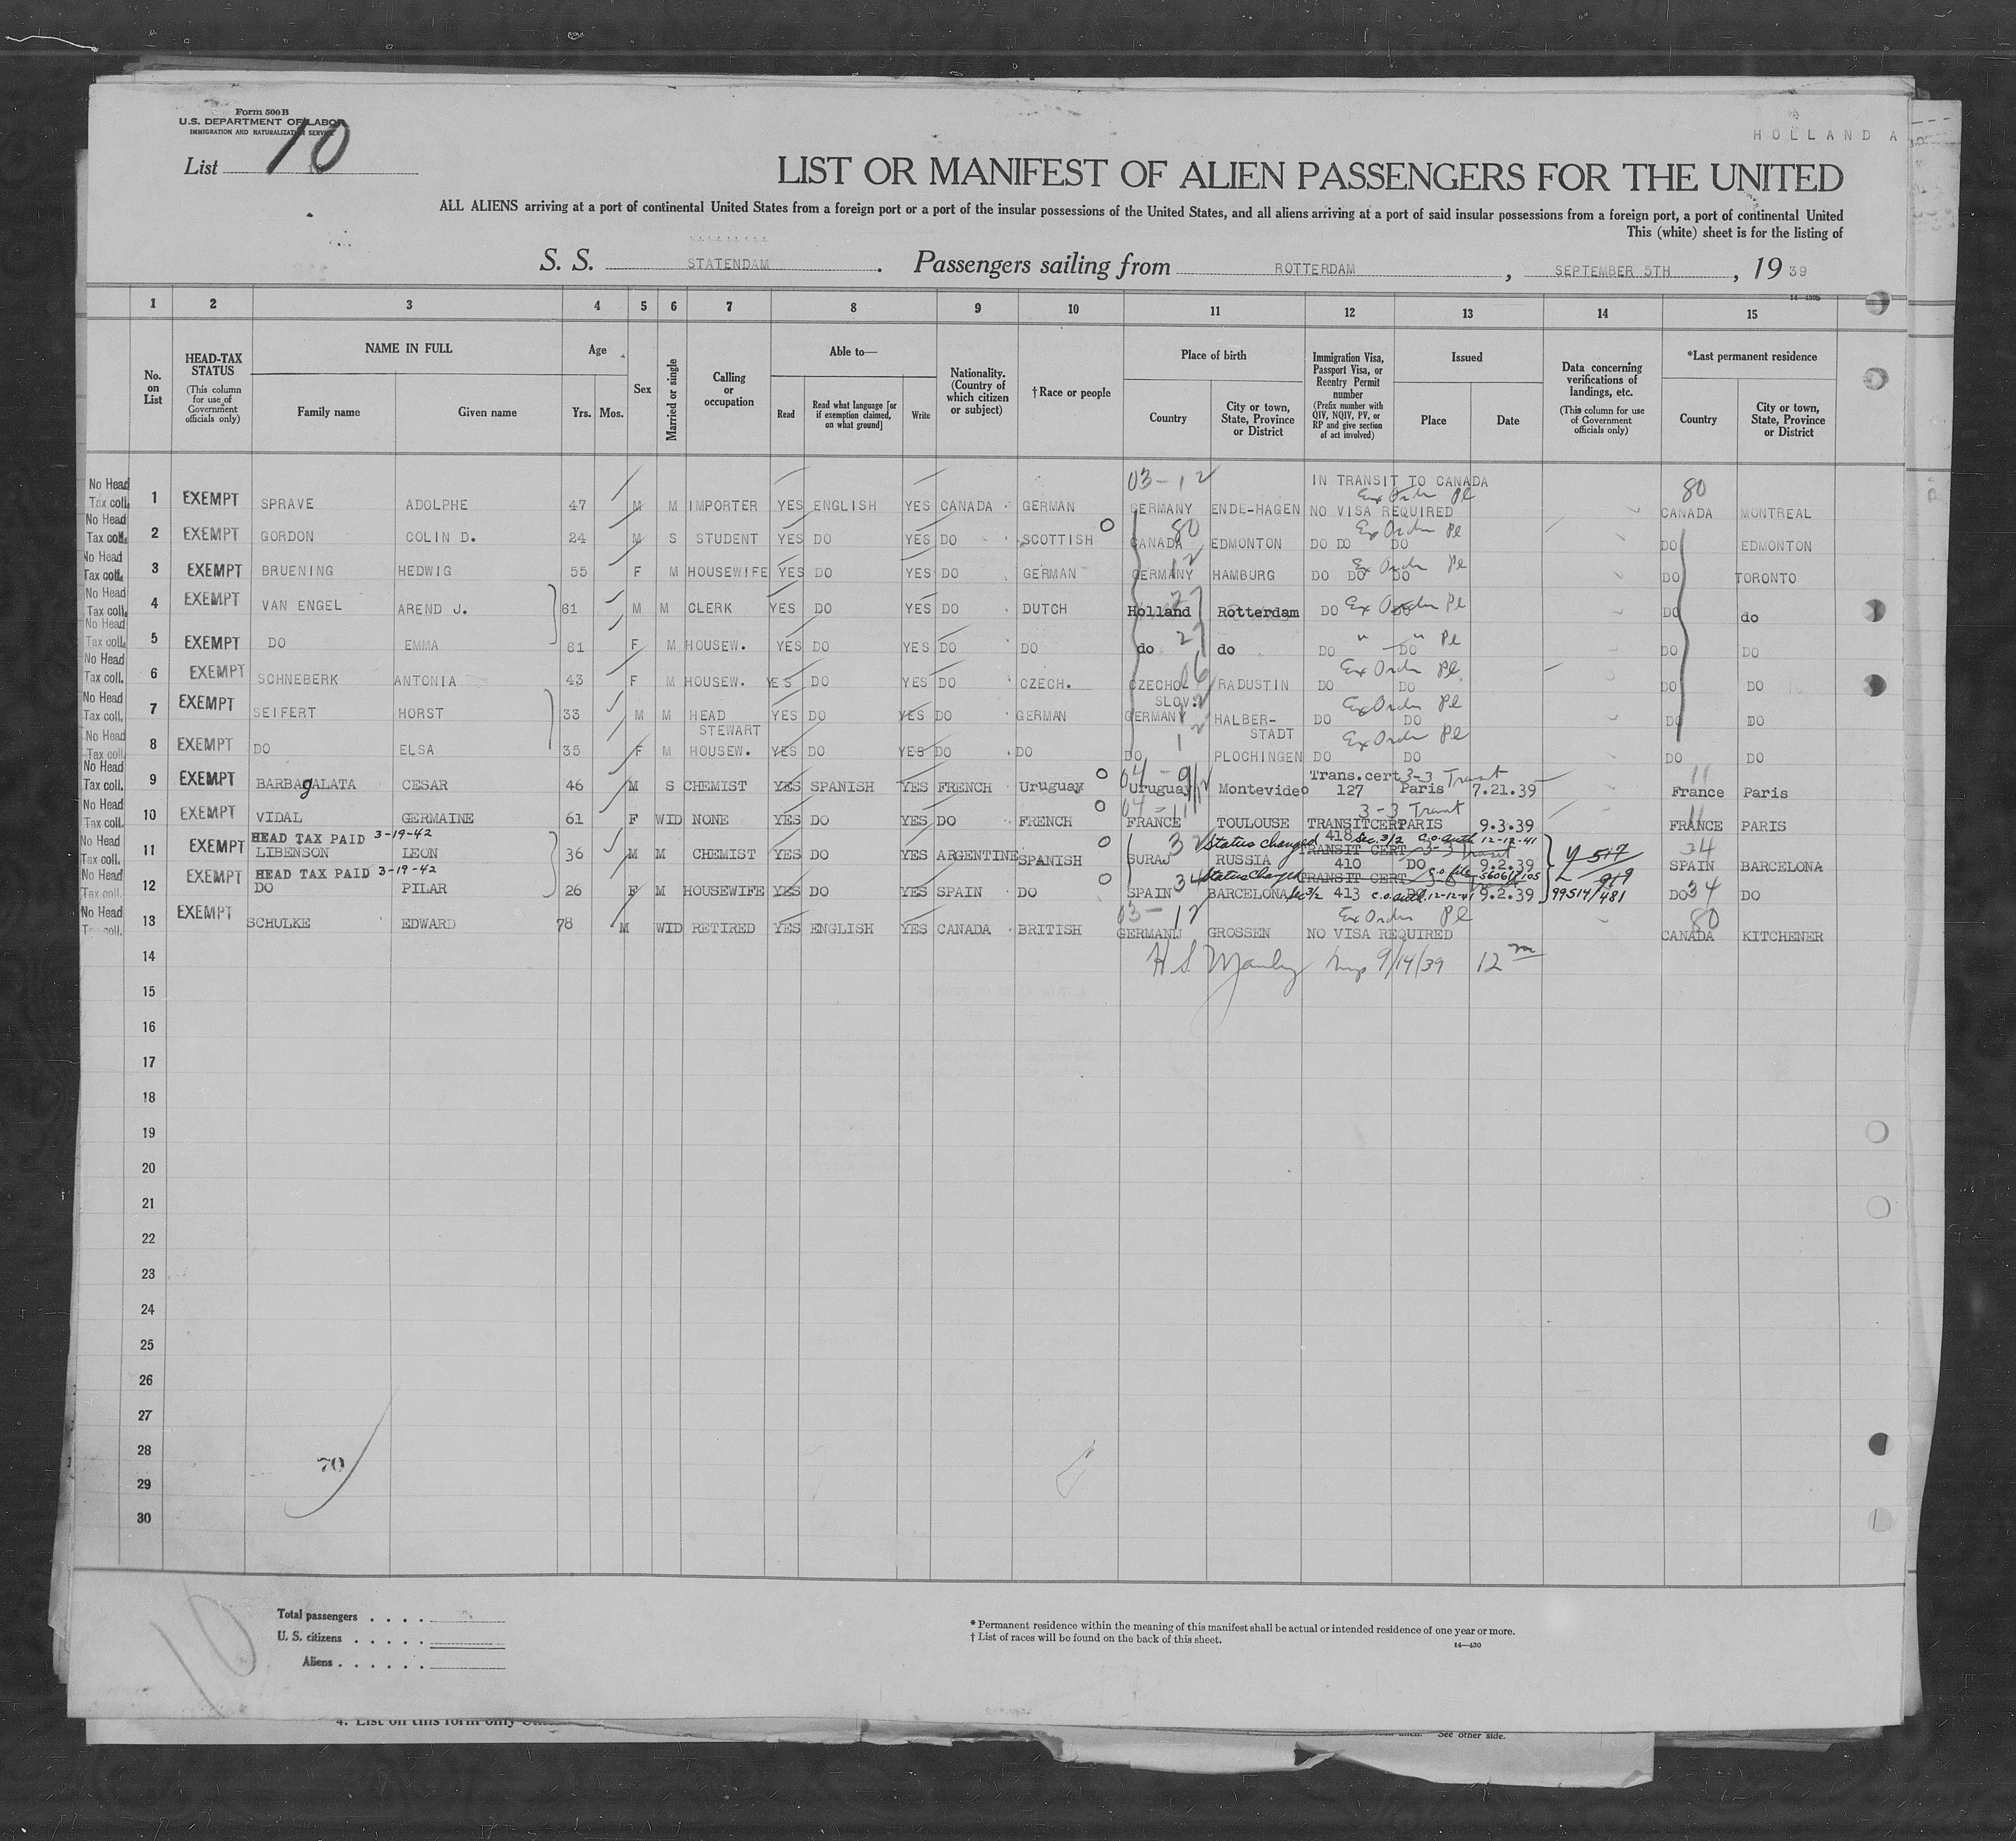 Form 500 B
U.S. DEPARTMENT OF LABOR
IMMIGRATION AND NATURALIZATION SERVICE
HOLLAND A
List 10
LIST OR MANIFEST OF ALIEN PASSENGERS FOR THE UNITED
ALL ALIENS arriving at a port of continental United States from a foreign port or a port of the insular possessions of the United States, and all aliens arriving at a port of said insular possessions from a foreign port, a port of continental United
This (white) sheet is for the listing of
S. S. STATENDAM. Passengers sailing from ROTTERDAM, SEPTEMBER 5TH, 19 39
1 2 3 4 5 6 7 8 9 10 11 12 13 14 15
No. on List
HEAD-TAX STATUS (This column for use of Government officials only)
NAME IN FULL
Family name Given name
Age Yrs. Mos.
Sex
Married or single
Calling or occupation
Able to—
Read Read what language [or if exemption claimed, on what ground] Write
Nationality. (Country of which citizen or subject)
† Race or people
Place of birth
Country City or town, State, Province or District
Immigration Visa, Passport Visa, or Reentry Permit number (Prefix number with QIV, NQIV, PV, or RP and give section of act involved)
Issued
Place Date
Data concerning verifications of landings, etc. (This column for use of Government officials only)
*Last permanent residence
Country City or town, State, Province or District
03-12 IN TRANSIT TO CANADA 80
No Head Tax coll. 1 EXEMPT SPRAVE ADOLPHE 47 M M IMPORTER YES ENGLISH YES CANADA GERMAN GERMANY ENDE-HAGEN NO VISA REQUIRED CANADA MONTREAL
No Head Tax coll. 2 EXEMPT GORDON COLIN D. 24 M S STUDENT YES DO YES DO SCOTTISH CANADA 80 EDMONTON DO DO DO DO EDMONTON
No Head Tax coll. 3 EXEMPT BRUENING HEDWIG 55 F M HOUSEWIFE YES DO YES DO GERMAN GERMANY HAMBURG DO DO DO DO TORONTO
No Head Tax coll. 4 EXEMPT VAN ENGEL AREND J. 61 M M CLERK YES DO YES DO DUTCH Holland Rotterdam DO DO DO do
No Head Tax coll. 5 EXEMPT DO EMMA 61 F M HOUSEW. YES DO YES DO DO do do DO DO DO DO
No Head Tax coll. 6 EXEMPT SCHNEBERK ANTONIA 43 F M HOUSEW. YES DO YES DO CZECH. CZECHO SLOV. 06 RADUSTIN DO DO DO DO
No Head Tax coll. 7 EXEMPT SEIFERT HORST 33 M M HEAD STEWART YES DO YES DO GERMAN GERMANY HALBER-STADT DO DO DO DO
No Head Tax coll. 8 EXEMPT DO ELSA 35 F M HOUSEW. YES DO YES DO DO DO PLOCHINGEN DO DO DO DO
No Head Tax coll. 9 EXEMPT BARBAgALATA CESAR 46 M S CHEMIST YES SPANISH YES FRENCH Uruguay Uruguay Montevideo Trans.cert 3-3 Transit 127 Paris 7.21.39 France Paris
No Head Tax coll. 10 EXEMPT VIDAL GERMAINE 61 F WID NONE YES DO YES DO FRENCH FRANCE TOULOUSE TRANSITCERT 418 3-3 Transit PARIS 9.3.39 FRANCE PARIS
HEAD TAX PAID 3-19-42
No Head Tax coll. 11 EXEMPT LIBENSON LEON 36 M M CHEMIST YES DO YES ARGENTINE SPANISH SURAJ RUSSIA Status changed Sec. 3/2 C.O. auth 12-12-41 TRANSIT CERT 410 DO 9.2.39 SPAIN 34 BARCELONA
HEAD TAX PAID 3-19-42
No Head Tax coll. 12 EXEMPT DO PILAR 26 F M HOUSEWIFE YES DO YES SPAIN DO SPAIN 34 BARCELONA Status changed Sec 3/2 TRANSIT CERT 413 C.O. auth. 12-12-41 9.2.39 99514/481 DO 34 DO
No Head Tax coll. 13 EXEMPT SCHULKE EDWARD 78 M WID RETIRED YES ENGLISH YES CANADA BRITISH GERMANY GROSSEN NO VISA REQUIRED CANADA 80 KITCHENER
14 9/14/39 12
15
16
17
18
19
20
21
22
23
24
25
26
27
28
70
29
30
10
Total passengers . . . .
U. S. citizens . . . . .
Aliens . . . . . .
* Permanent residence within the meaning of this manifest shall be actual or intended residence of one year or more.
† List of races will be found on the back of this sheet.
14—430
4. List on this form only
See other side.